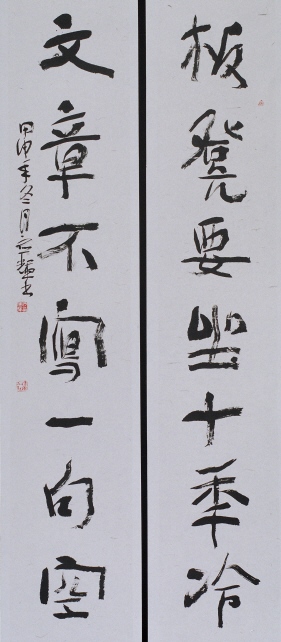 板凳要坐十年冷
文章不寫一句空
甲申年冬月